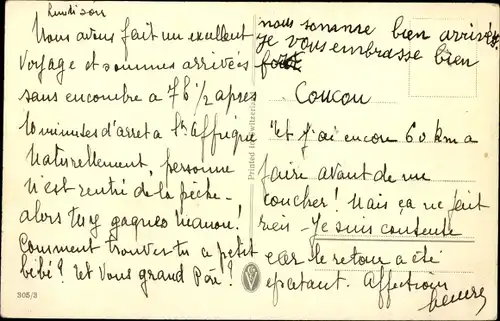 Lundi soir
Nous avons fait un excellent
voyage et sommes arrivés
sans encombre a 7h 1/2 apres
10 minutes d'arret a St Affrique
Naturellement, personne
n'est rentré de la pêche -
alors tu y gagnes Manon!
Comment trouves-tu ce petit
bébé? Et vous grand Père?
305/3
Printed in Switzerland
nous sommse bien arrivés.
je vous embrasse bien
fort
Coucou
"et j'ai encore 60 km a
faire avant de me
coucher! Mais ça ne fait
rien - Je suis contente
car le retour a été
epatant. Affection